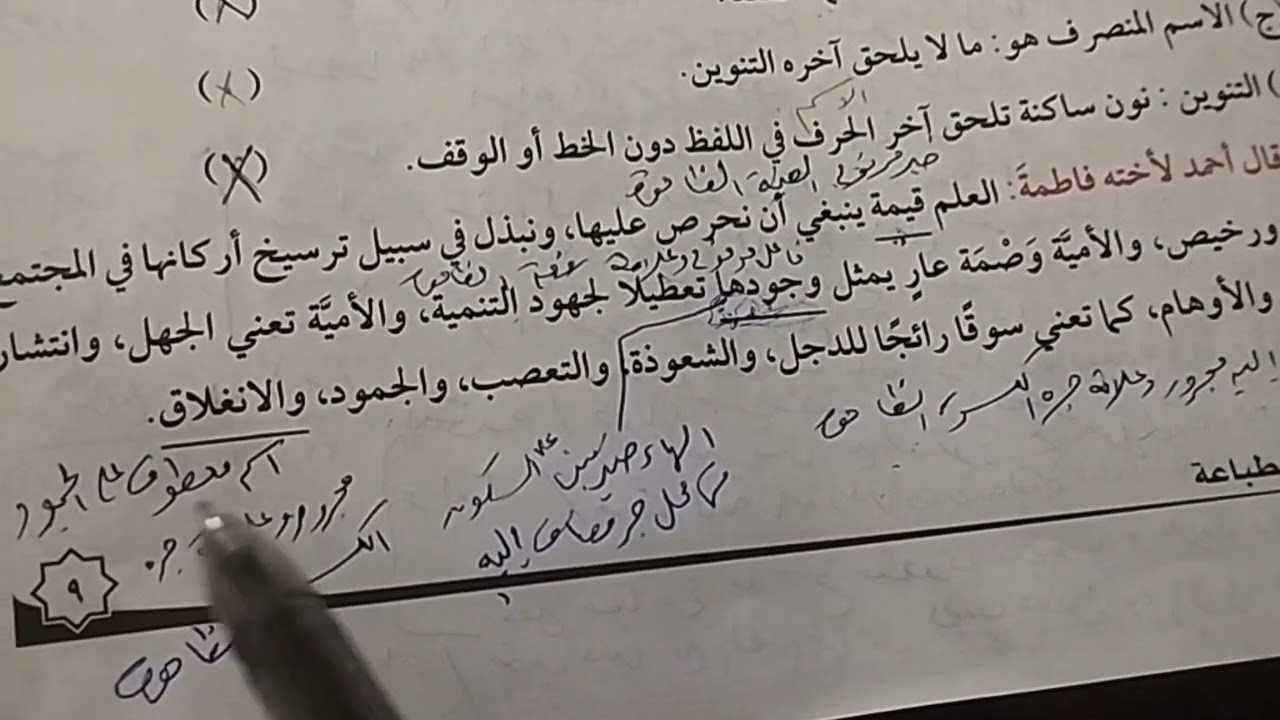 (X)
ج) الاسم المنصرف هو: ما لا يلحق آخره التنوين.
(X)
الاسم
) التنوين: نون ساكنة تلحق آخر الحرف في اللفظ دون الخط أو الوقف.
(X)
خبر مرفوع الضمة الظاهرة
قال أحمد لأخته فاطمةَ: العلم قيمة ينبغي أن نحرص عليها، ونبذل في سبيل ترسيخ أركانها في المجتمع
فاعل مرفوع وعلامة رفعه الظاهرة
ورخيص، والأميَّة وَصْمَة عارٍ يمثل وجودها تعطيلًا لجهود التنمية، والأميَّة تعني الجهل، وانتشار
والأوهام، كما تعني سوقًا رائجًا للدجل، والشعوذة، والتعصب، والجمود، والانغلاق.
إليه مجرور وعلامة جره الكسرة الظاهرة
الهاء ضمير مبني على السكون
في محل جر مضاف إليه
اسم معطوف على الجمود
مجرور جره
الظاهرة
طباعة
٩